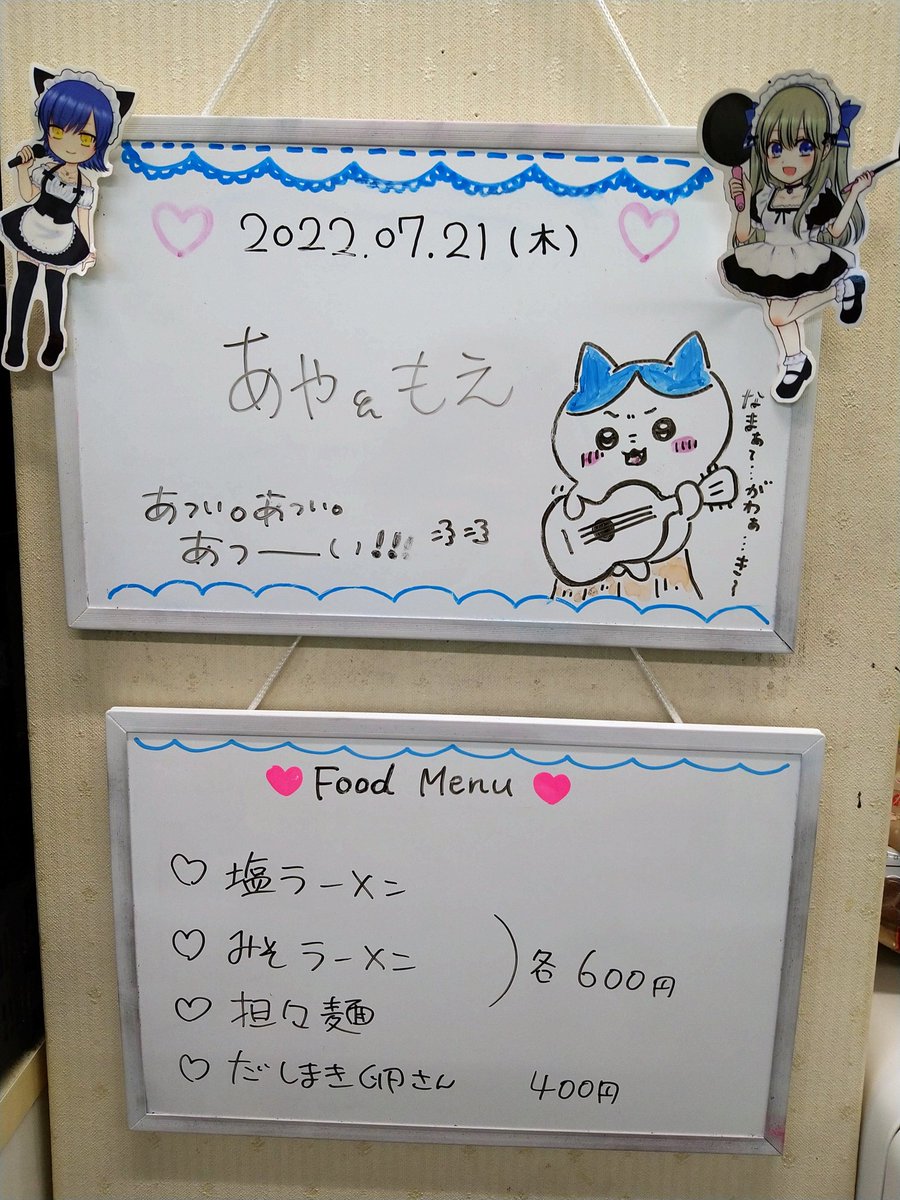 2022.07.21(木)
あや&もえ
あつい。あつい。
あつーい!!!
なまぁ〜…がわぁ…き〜
Food Menu
塩ラーメン
みそラーメン
担々麺
各 600円
だしまき卵さん 400円